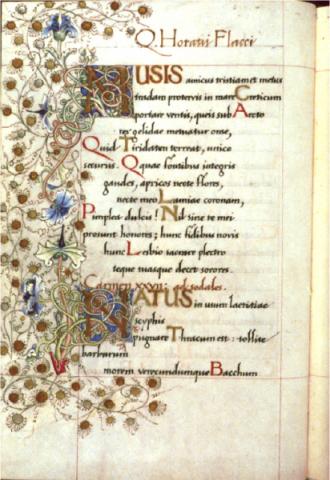 Q. Horatii Flacci
MUSIS amicus tristiam et metus
tradam protervis in mare Creticum
portare ventis, queis sub Arcto
rex gelidae metuatur orae,
Quid Tiridaten terreat, unice
securus. Quae fontibus integris
gaudes, apricos necte flores,
necte meo Lamiae coronam,
Pimplea dulcis! Nil sine te mei
prosunt honores; hunc fidibus novis
hunc Lesbio sacrare plectro
teque tuasque decet sorores.
Carmen xxvii; ad sodales.
NATUS in usum laetitiae
scyphis
pugnare Thracum est: tollite
barbarum
morem verecundumque Bacchum